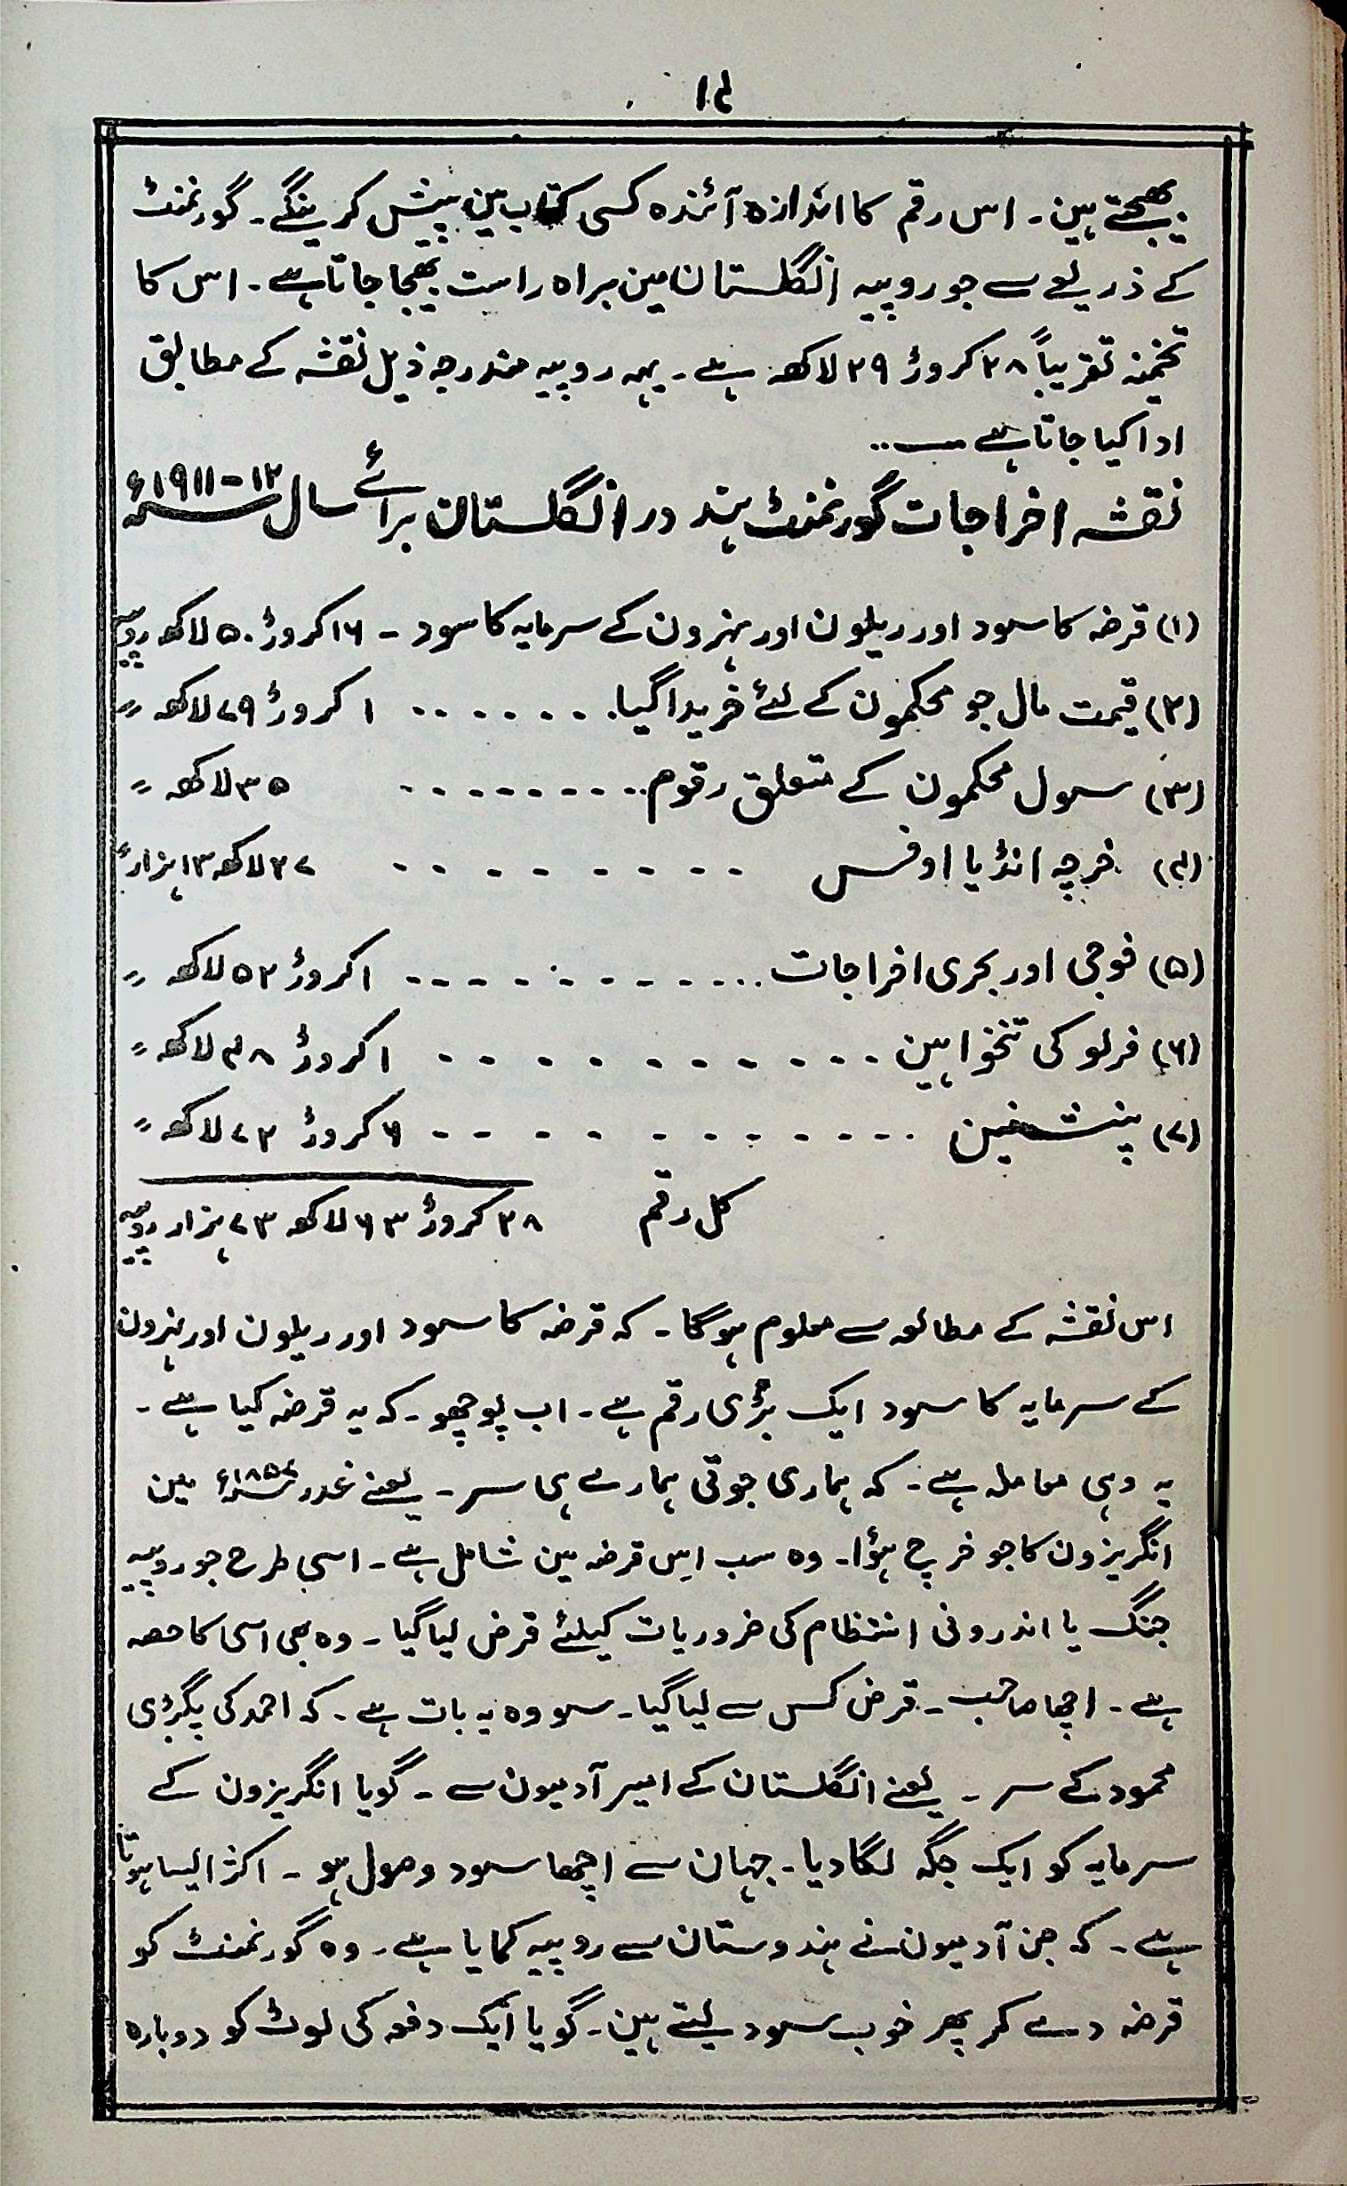 ۱۴
بھیجتے ہین۔ اس رقم کا اندازہ آئندہ کسی کتاب مین پیش کرینگے۔ گورنمنٹ
کے ذریعے سے جو روپیہ انگلستان مین براہ راست بھیجا جاتا ہے۔ اس کا
تخمینہ تقریباً ۲۸ کروڑ ۲۹ لاکھ ہے۔ یہہ روپیہ مندرجہ ذیل نقشہ کے مطابق
ادا کیا جاتا ہے ــ..
نقشہ اخراجات گورنمنٹ ہند در انگلستان برائے سال ۱۲-۱۹۱۱ء
(۱) قرضہ کا سود اور ریلون اور نہرون کے سرمایہ کا سود - ۱۶ کروڑ ۵۰ لاکھ روپیہ
(۲) قیمت مال جو محکمون کے لئے خریدا گیا . . . . . . . ۱ کروڑ ۷۹ لاکھ 〃
(۳) سول محکمون کے متعلق رقوم . . . . . . . . . ۳۵ لاکھ 〃
(۴) خرچہ انڈیا اوفس - - - - - - - - ۲۷ لاکھ ۱۳ ہزار 〃
(۵) فوجی اور بحری اخراجات . . . - - - - - - - - ۱ کروڑ ۵۲ لاکھ 〃
(۶) فرلو کی تنخواہین - - - - - - - - - - ۱ کروڑ ۴۸ لاکھ 〃
(۷) پنشنین - - - - - - - - - - ۶ کروڑ ۷۲ لاکھ 〃
کل رقم ۲۸ کروڑ ۶۳ لاکھ ۷۳ ہزار روپیہ
اس نقشہ کے مطالعہ سے معلوم ہوگا۔ کہ قرضہ کا سود اور ریلون اور نہرون
کے سرمایہ کا سود ایک بڑی رقم ہے۔ اب پوچھو۔ کہ یہ قرضہ کیا ہے۔
یہ وہی معاملہ ہے۔ کہ ہماری جوتی ہمارے ہی سر۔ یعنے غدر ۱۸۵۷ء مین
انگریزون کا جو خرچ ہؤا۔ وہ سب اِس قرضہ مین شامل ہے۔ اسی طرح جو روپیہ
جنگ یا اندرونی انتظام کی ضروریات کیلئے قرض لیا گیا۔ وہ بھی اسی کا حصہ
ہے۔ اچھا صاحب۔ قرض کس سے لیا گیا۔ سو وہ یہ بات ہے۔ کہ احمد کی پگڑی
محمود کے سر۔ یعنے انگلستان کے امیر آدمیون سے۔ گویا انگریزون کے
سرمایہ کو ایک جگہ لگا دیا۔ جہان سے اچھا سود وصول ہو۔ اکثر ایسا ہوتا
ہے۔ کہ جن آدمیون نے ہندوستان سے روپیہ کمایا ہے۔ وہ گورنمنٹ کو
قرضہ دے کر پھر خوب سود لیتے ہین۔ گویا ایک دفعہ کی لوٹ کو دوبارہ